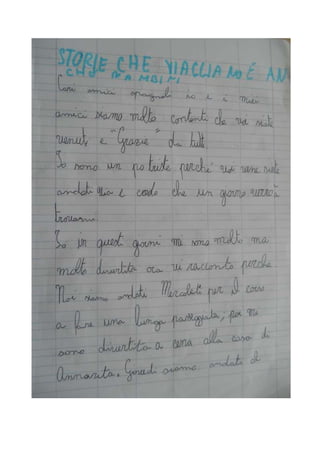 STORIE CHE VIAGGIANO E AN
CHE BAMBINI
Cari amici spagnoli io e i miei
amici siamo molto contenti che voi siete
venuti e "Grazie" da tutti.
Io sono un po triste perché voi ve ne siete
andati via e credo che un giorno verrò a
trovarvi.
Io in questi giorni mi sono molto ma
molto divertita ora vi racconto perché
Noi siamo andati Mercoledì per il corso
a fare una lunga passeggiata, poi mi
sono divertita a cena alla casa di
Annarita, Giovedì siamo andati al